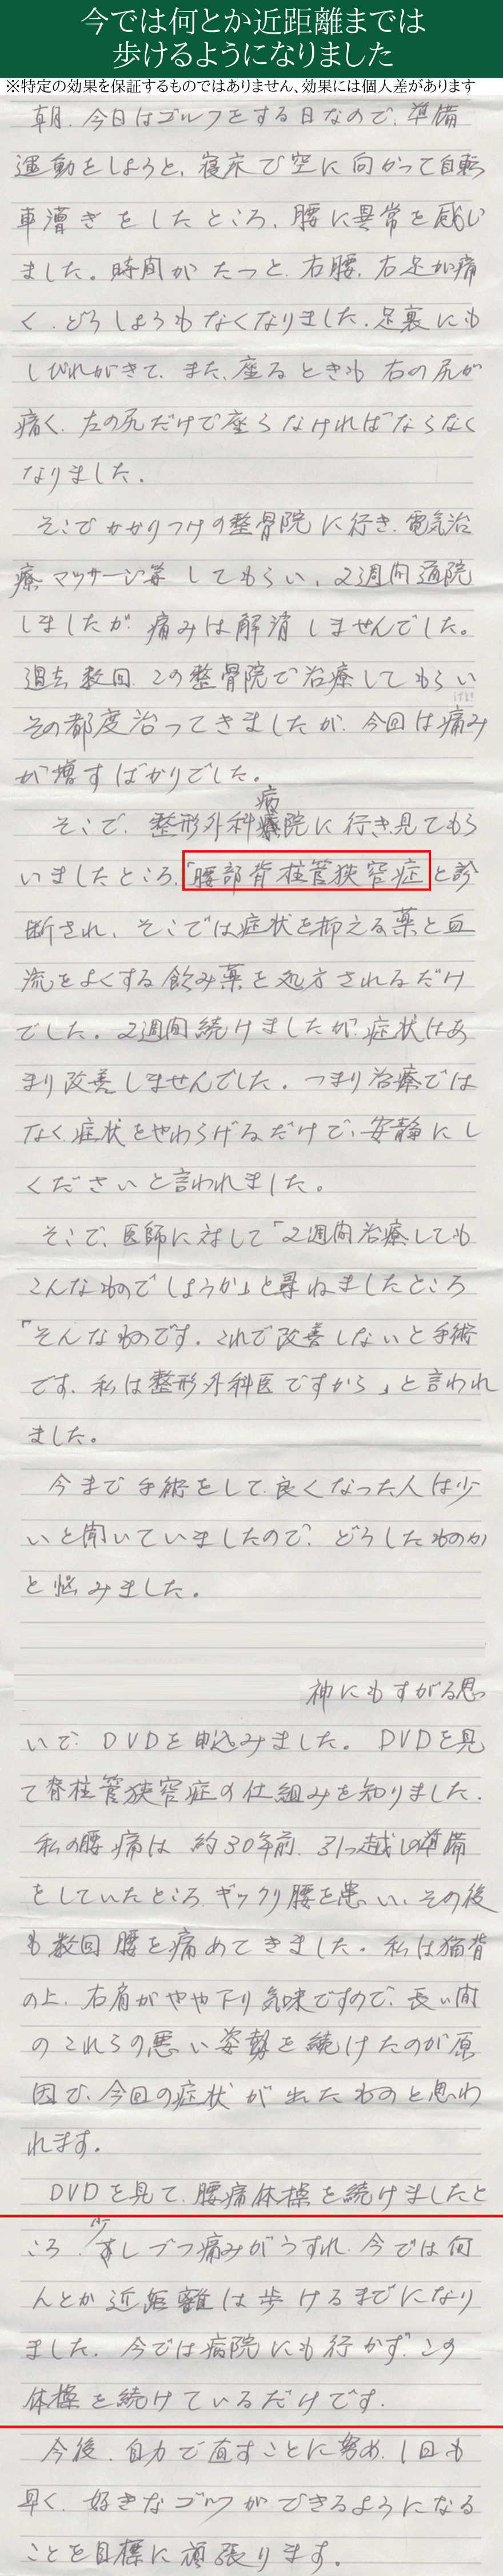 今では何とか近距離までは
歩けるようになりました
※特定の効果を保証するものではありません、効果には個人差があります
朝、今日はゴルフをする日なので、準備
運動をしようと、寝床で空に向かって自転
車漕ぎをしたところ、腰に異常を感じ
ました。時間がたつと、右腰、右足が痛
く、どうしようもなくなりました。足裏にも
しびれがきて、また、座るときも右の尻が
痛く、左の尻だけで座らなければならなく
なりました。
そこでかかりつけの整骨院に行き、電気治
療、マッサージ等してもらい、2週間通院
しましたが、痛みは解消しませんでした。
過去数回、この整骨院で治療してもらい
その都度治ってきましたが、今回は痛み
が増すばかりでした。
そこで、整形外科病院に行き見てもら
いましたところ、「腰部脊柱管狭窄症」と診
断され、そこでは症状を抑える薬と血
流をよくする飲み薬を処方されるだけ
でした。2週間続けましたが、症状はあ
まり改善しませんでした。つまり治療では
なく、症状をやわらげるだけで、安静にし
くださいと言われました。
そこで、医師に対して「2週間治療しても
こんなものでしょうか」と尋ねましたところ
「そんなものです。これで改善しないと手術
です。私は整形外科医ですから」と言われ
ました。
今まで手術をして、良くなった人は少
いと聞いていましたので、どうしたものか
と悩みました。
神にもすがる思
いで、DVDを申込みました。DVDを見
て脊柱管狭窄症の仕組みを知りました。
私の腰痛は、約30年前、引っ越しの準備
をしていたところ、ギックリ腰を患い、その後
も数回腰を痛めてきました。私は猫背
の上、右肩がやや下り気味ですので、長い間
のこれらの悪い姿勢を続けたのが原
因で、今回の症状が出たものと思わ
れます。
DVDを見て、腰痛体操を続けましたと
ころ、少しづつ痛みがうすれ、今では何
んとか近距離は歩けるまでになり
ました。今では病院にも行かず、この
体操を続けているだけです。
今後、自力で直すことに努め、1日も
早く、好きなゴルフができるようになる
ことを目標に頑張ります。